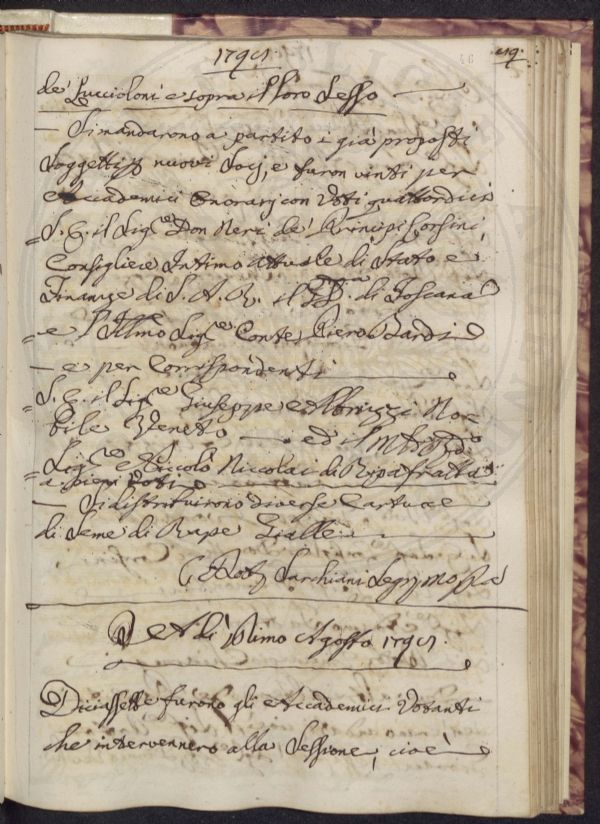 1795.
de' Luccioloni e sopra il loro Sesso
— Si mandarono a partito i già proposti
Soggetti p nuovi Socj, e furon vinti per
Accademici Onorarj con Voti quattordici
= S. E. il Sig.re Don Neri de' Principi Corsini,
Consigliere Intimo Attuale di Stato e
Finanze di S. A. R. il G. D. di Toscana
= e l'Ill.mo Sig.re Conte Piero Bardi
— e per Corrispondenti
= S. E. il Sig.re Giuseppe Albrizzi No-
bile Veneto — ed il M.to R.do
= Sig.re Niccolò Niccolai di Ripafratta
a pieni Voti
— Si distribuirono diverse Cartucce
di Seme di Rape Gialle
Sarchiani Seg.
Adì Primo Agosto 1795.
Diciassette furono gli Accademici Votanti
che intervennero alla Sessione, cioè